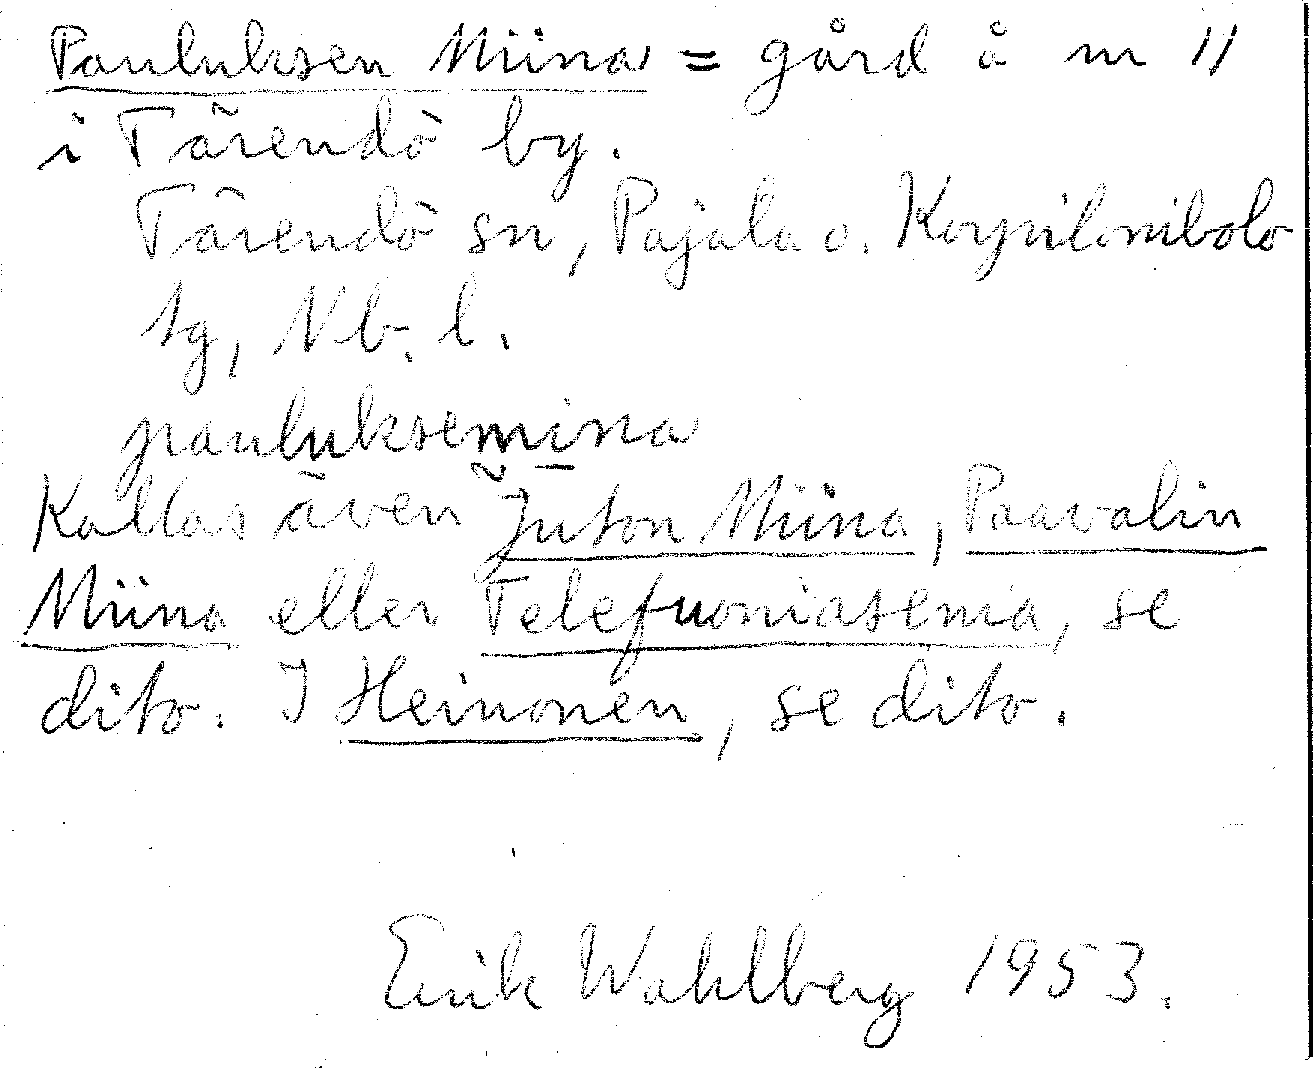 Pauluksen Miina = gård å m 11
i Tärendö by.
Tärendö sn, Pajala o. Korpilombolo
tg, Nb. l.
pauluksemīna
Kallas även Juton Miina, Paavalin
Miina eller Telefuoniasema, se
dito. I Heinonen, se dito.
Erik Wahlberg 1953.